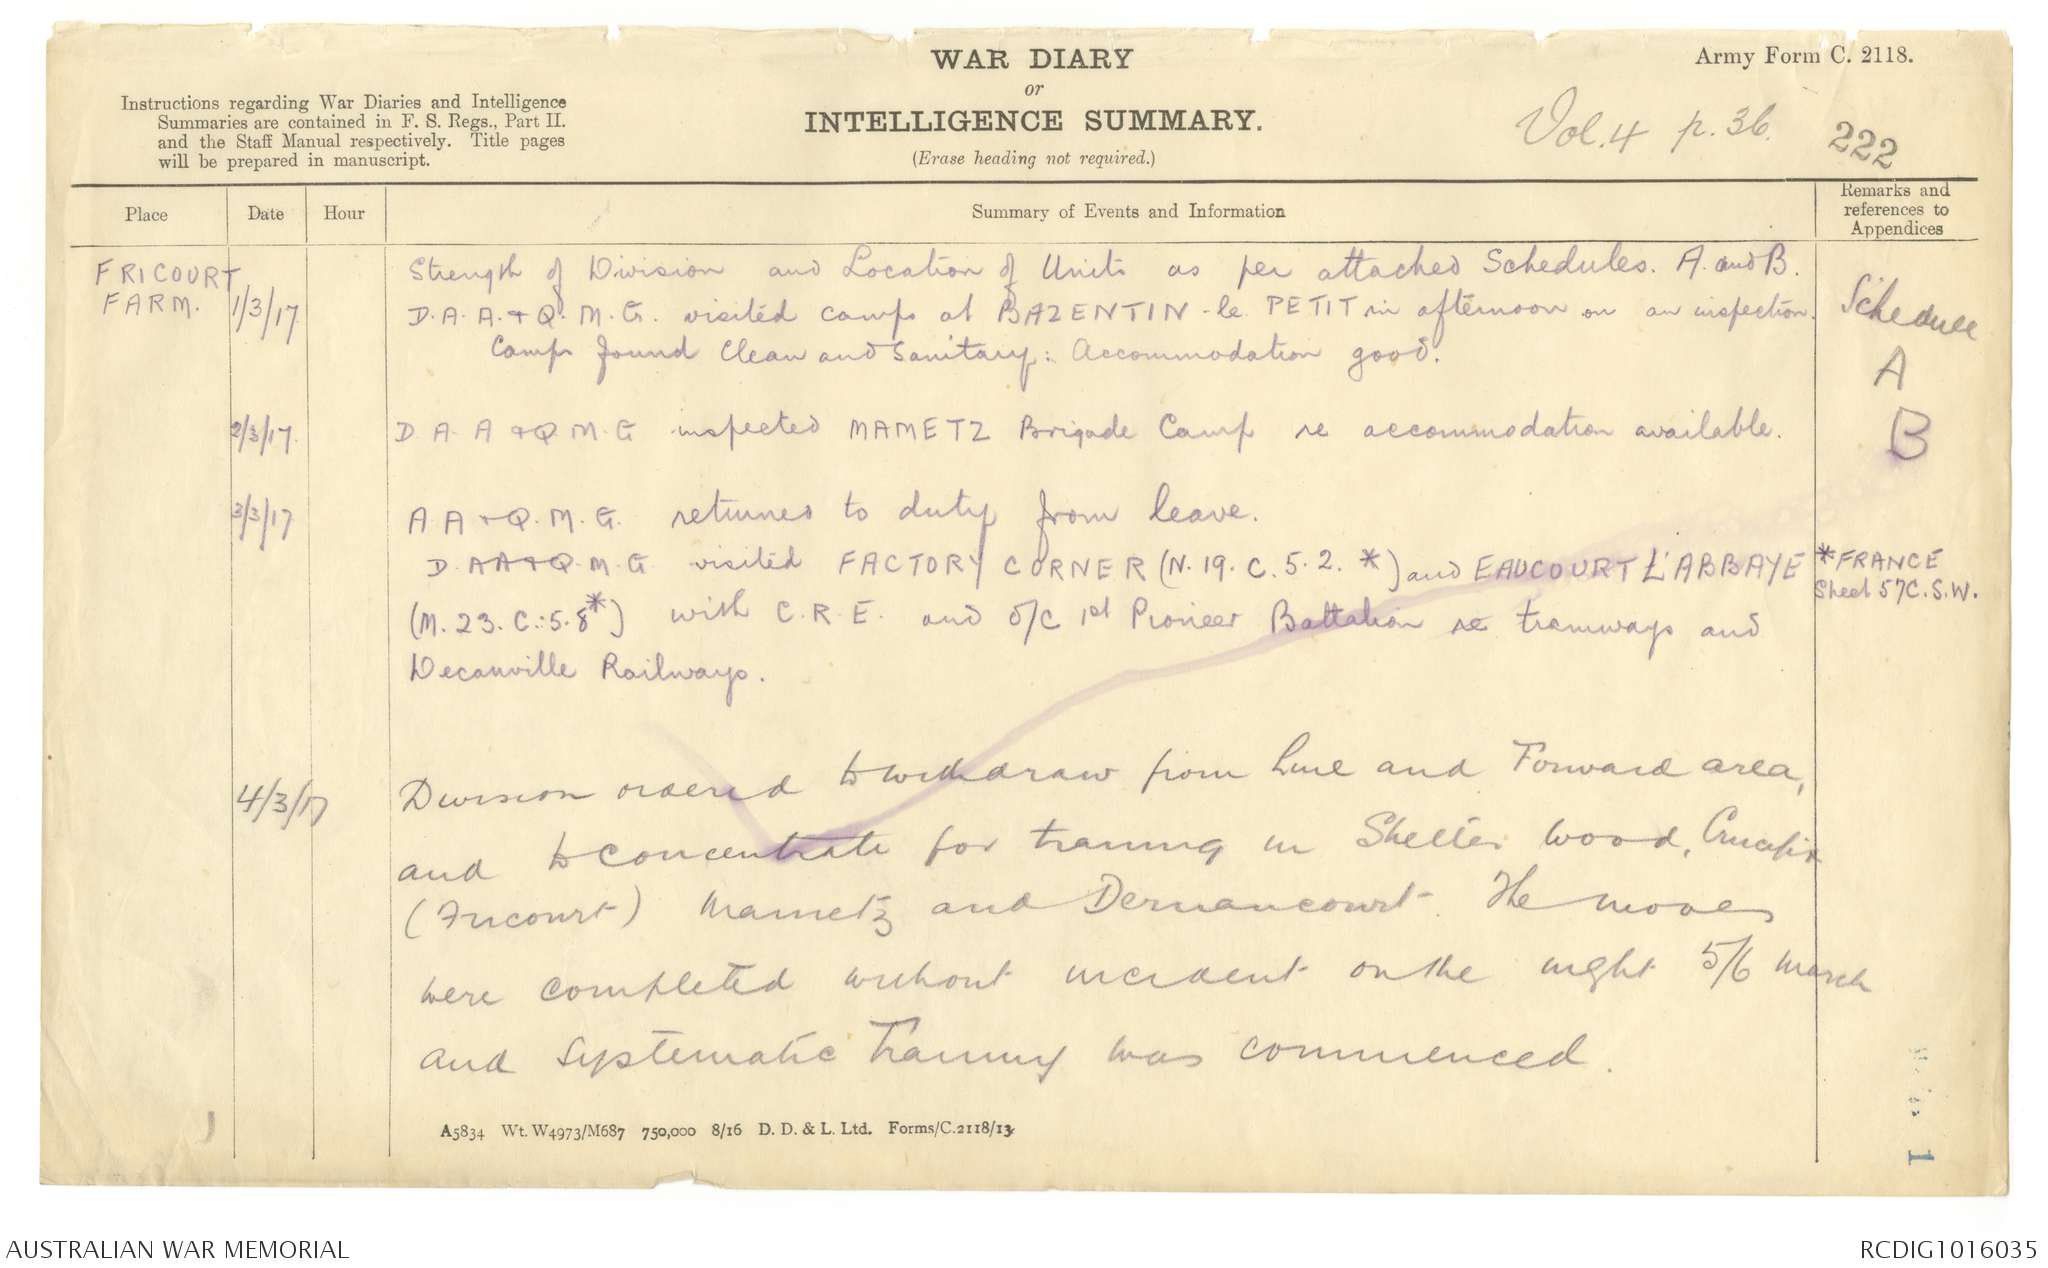 WAR DIARY
or
INTELLIGENCE SUMMARY.
(Erase heading not required.)
Army Form C. 2118.
Instructions regarding War Diaries and Intelligence
Summaries are contained in F. S. Regs., Part II.
and the Staff Manual respectively. Title pages
will be prepared in manuscript.
Vol. 4 p. 36.
222
Place
Date
Hour
Summary of Events and Information
Remarks and
references to
Appendices
FRICOURT
FARM.
1/3/17
Strength of Division and Location of Units as per attached Schedules. A. and B.
D. A. A. + Q. M. G. visited camps at BAZENTIN-le PETIT in afternoon on an inspection.
Camps found Clean and Sanitary: Accommodation good.
Schedule
A
B
2/3/17.
D. A. A + Q M. G inspected MAMETZ Brigade Camp re accommodation available.
3/3/17
A A + Q. M. G. returned to duty from leave.
D. AA+Q. M. G visited FACTORY CORNER (N. 19. C. 5. 2. *) and EAUCOURT L'ABBAYE
(M. 23. C.:5.8*) with C. R. E. and O/C 1st Pioneer Battalion re tramways and
Decauville Railways.
*FRANCE
Sheet 57C. S.W.
4/3/17
Division ordered to withdraw from Line and Forward area,
and to concentrate for training in Shelter Wood, Crucifix
(Fricourt) Mametz and Dernancourt. The moves
were completed without incident on the night 5/6 March
and systematic Training was commenced.
A5834 Wt. W4973/M687 750,000 8/16 D. D. & L. Ltd. Forms/C.2118/13
AUSTRALIAN WAR MEMORIAL
RCDIG1016035